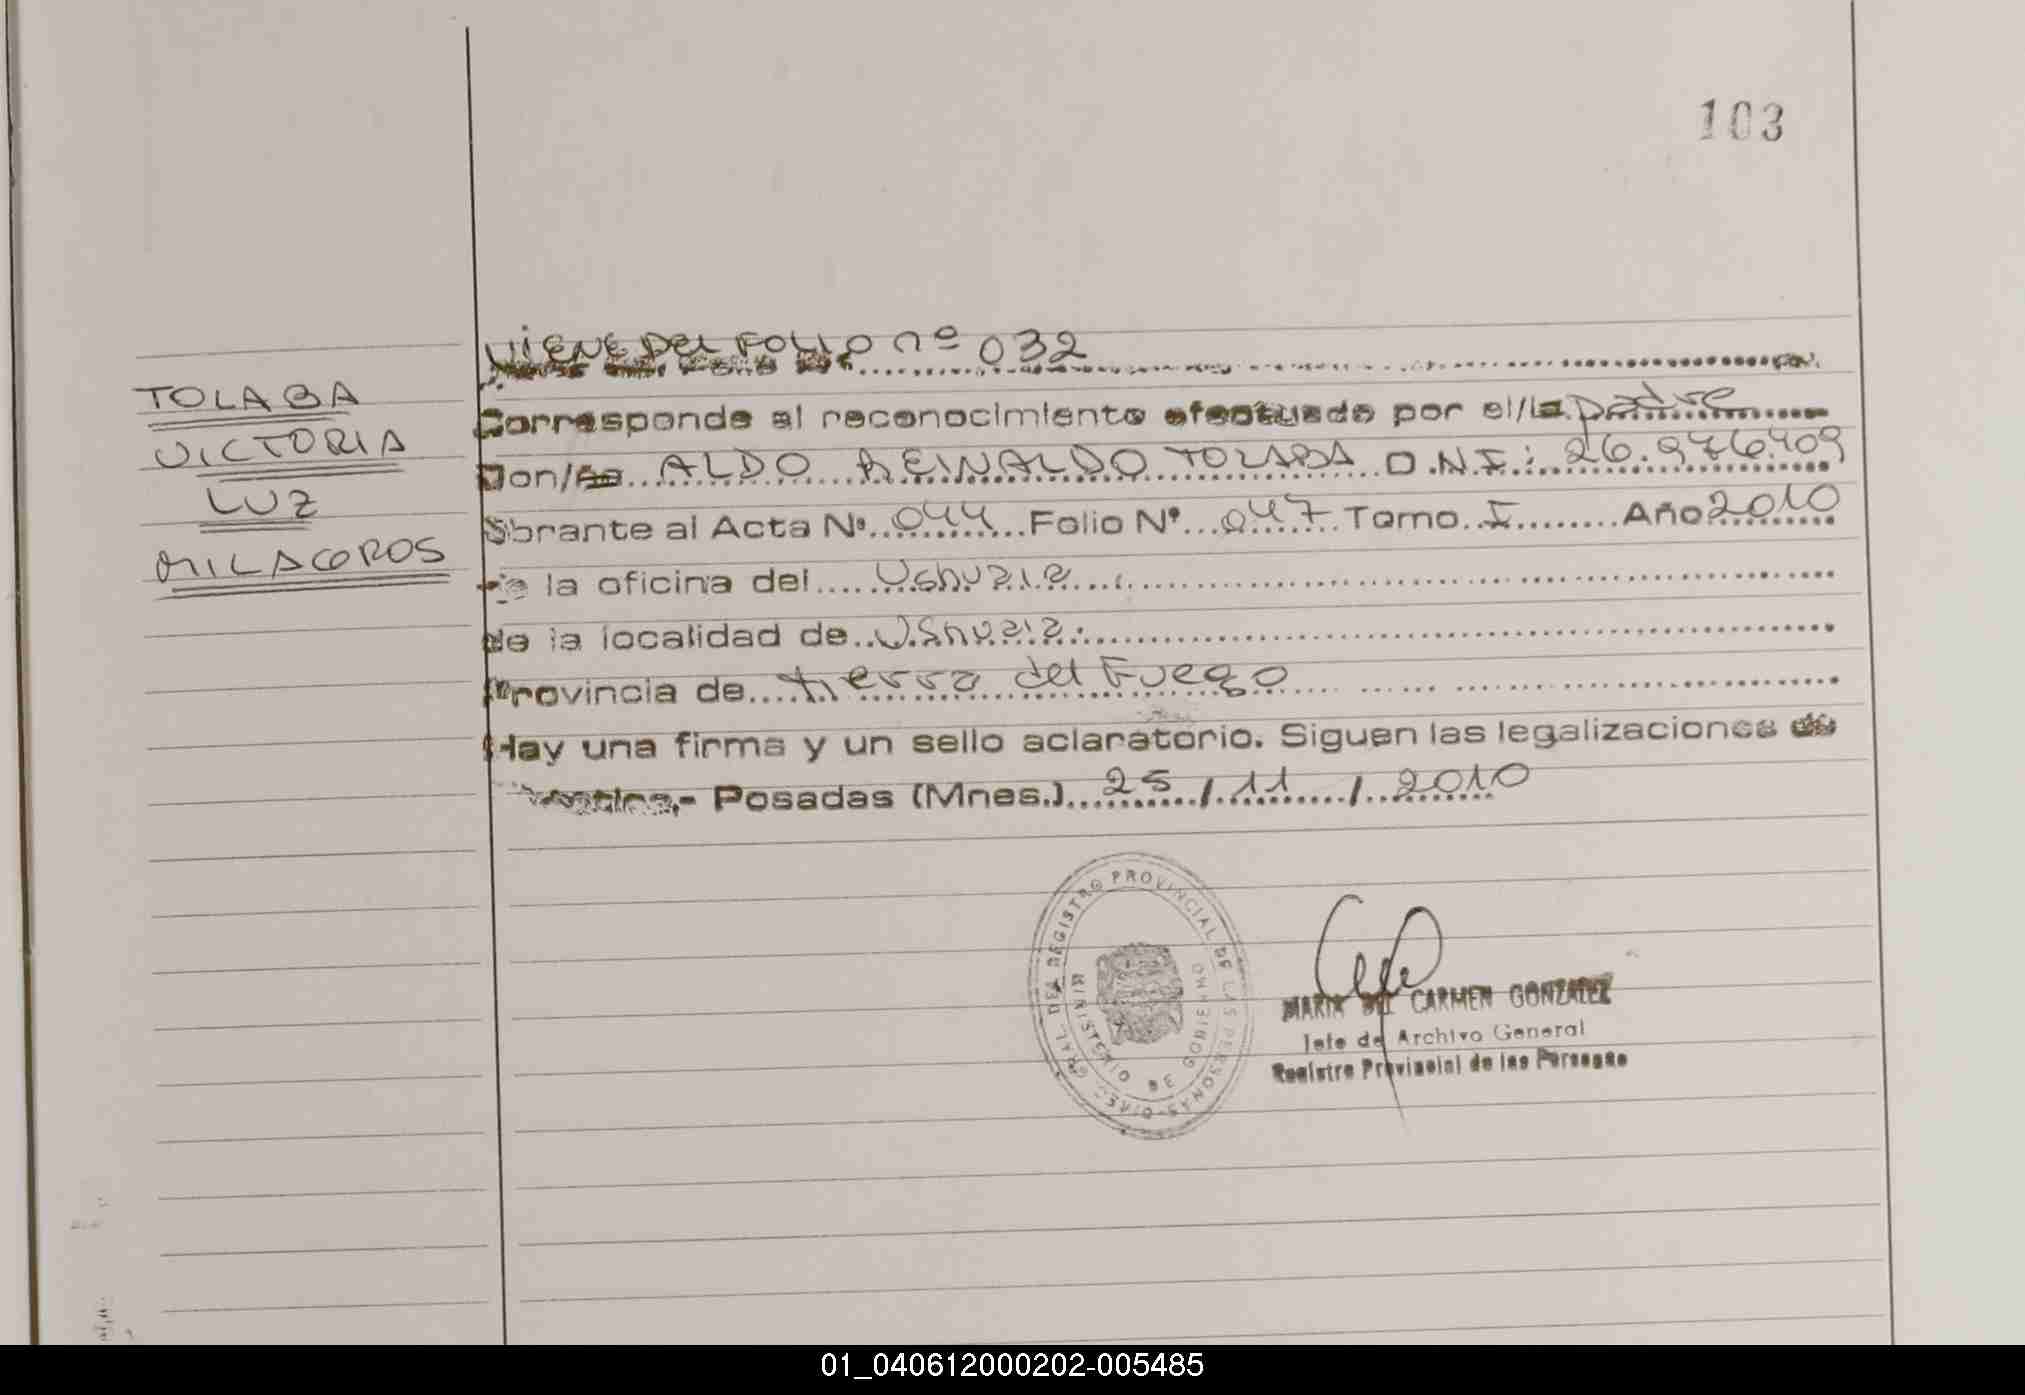 103
VIENE DEL FOLIO nº 032
TOLABA
VICTORIA
LUZ
MILAGROS
Corresponde al reconocimiento efectuado por el/la padre
Don/ña ALDO REINALDO TOLABA D.N.I.: 26.976.409
Obrante al Acta Nº 044 Folio Nº 047 Tomo I Año 2010
de la oficina del Ushuaia
de la localidad de Ushuaia
Provincia de tierra del Fuego
Hay una firma y un sello aclaratorio. Siguen las legalizaciones de
Posadas (Mnes.) 25 / 11 / 2010
DIREC. GRAL. DEL REGISTRO PROVINCIAL DE LAS PERSONAS
MINISTERIO DE GOBIERNO
MARIA DEL CARMEN GONZALEZ
Jefe de Archivo General
Registro Provincial de las Personas
01_040612000202-005485